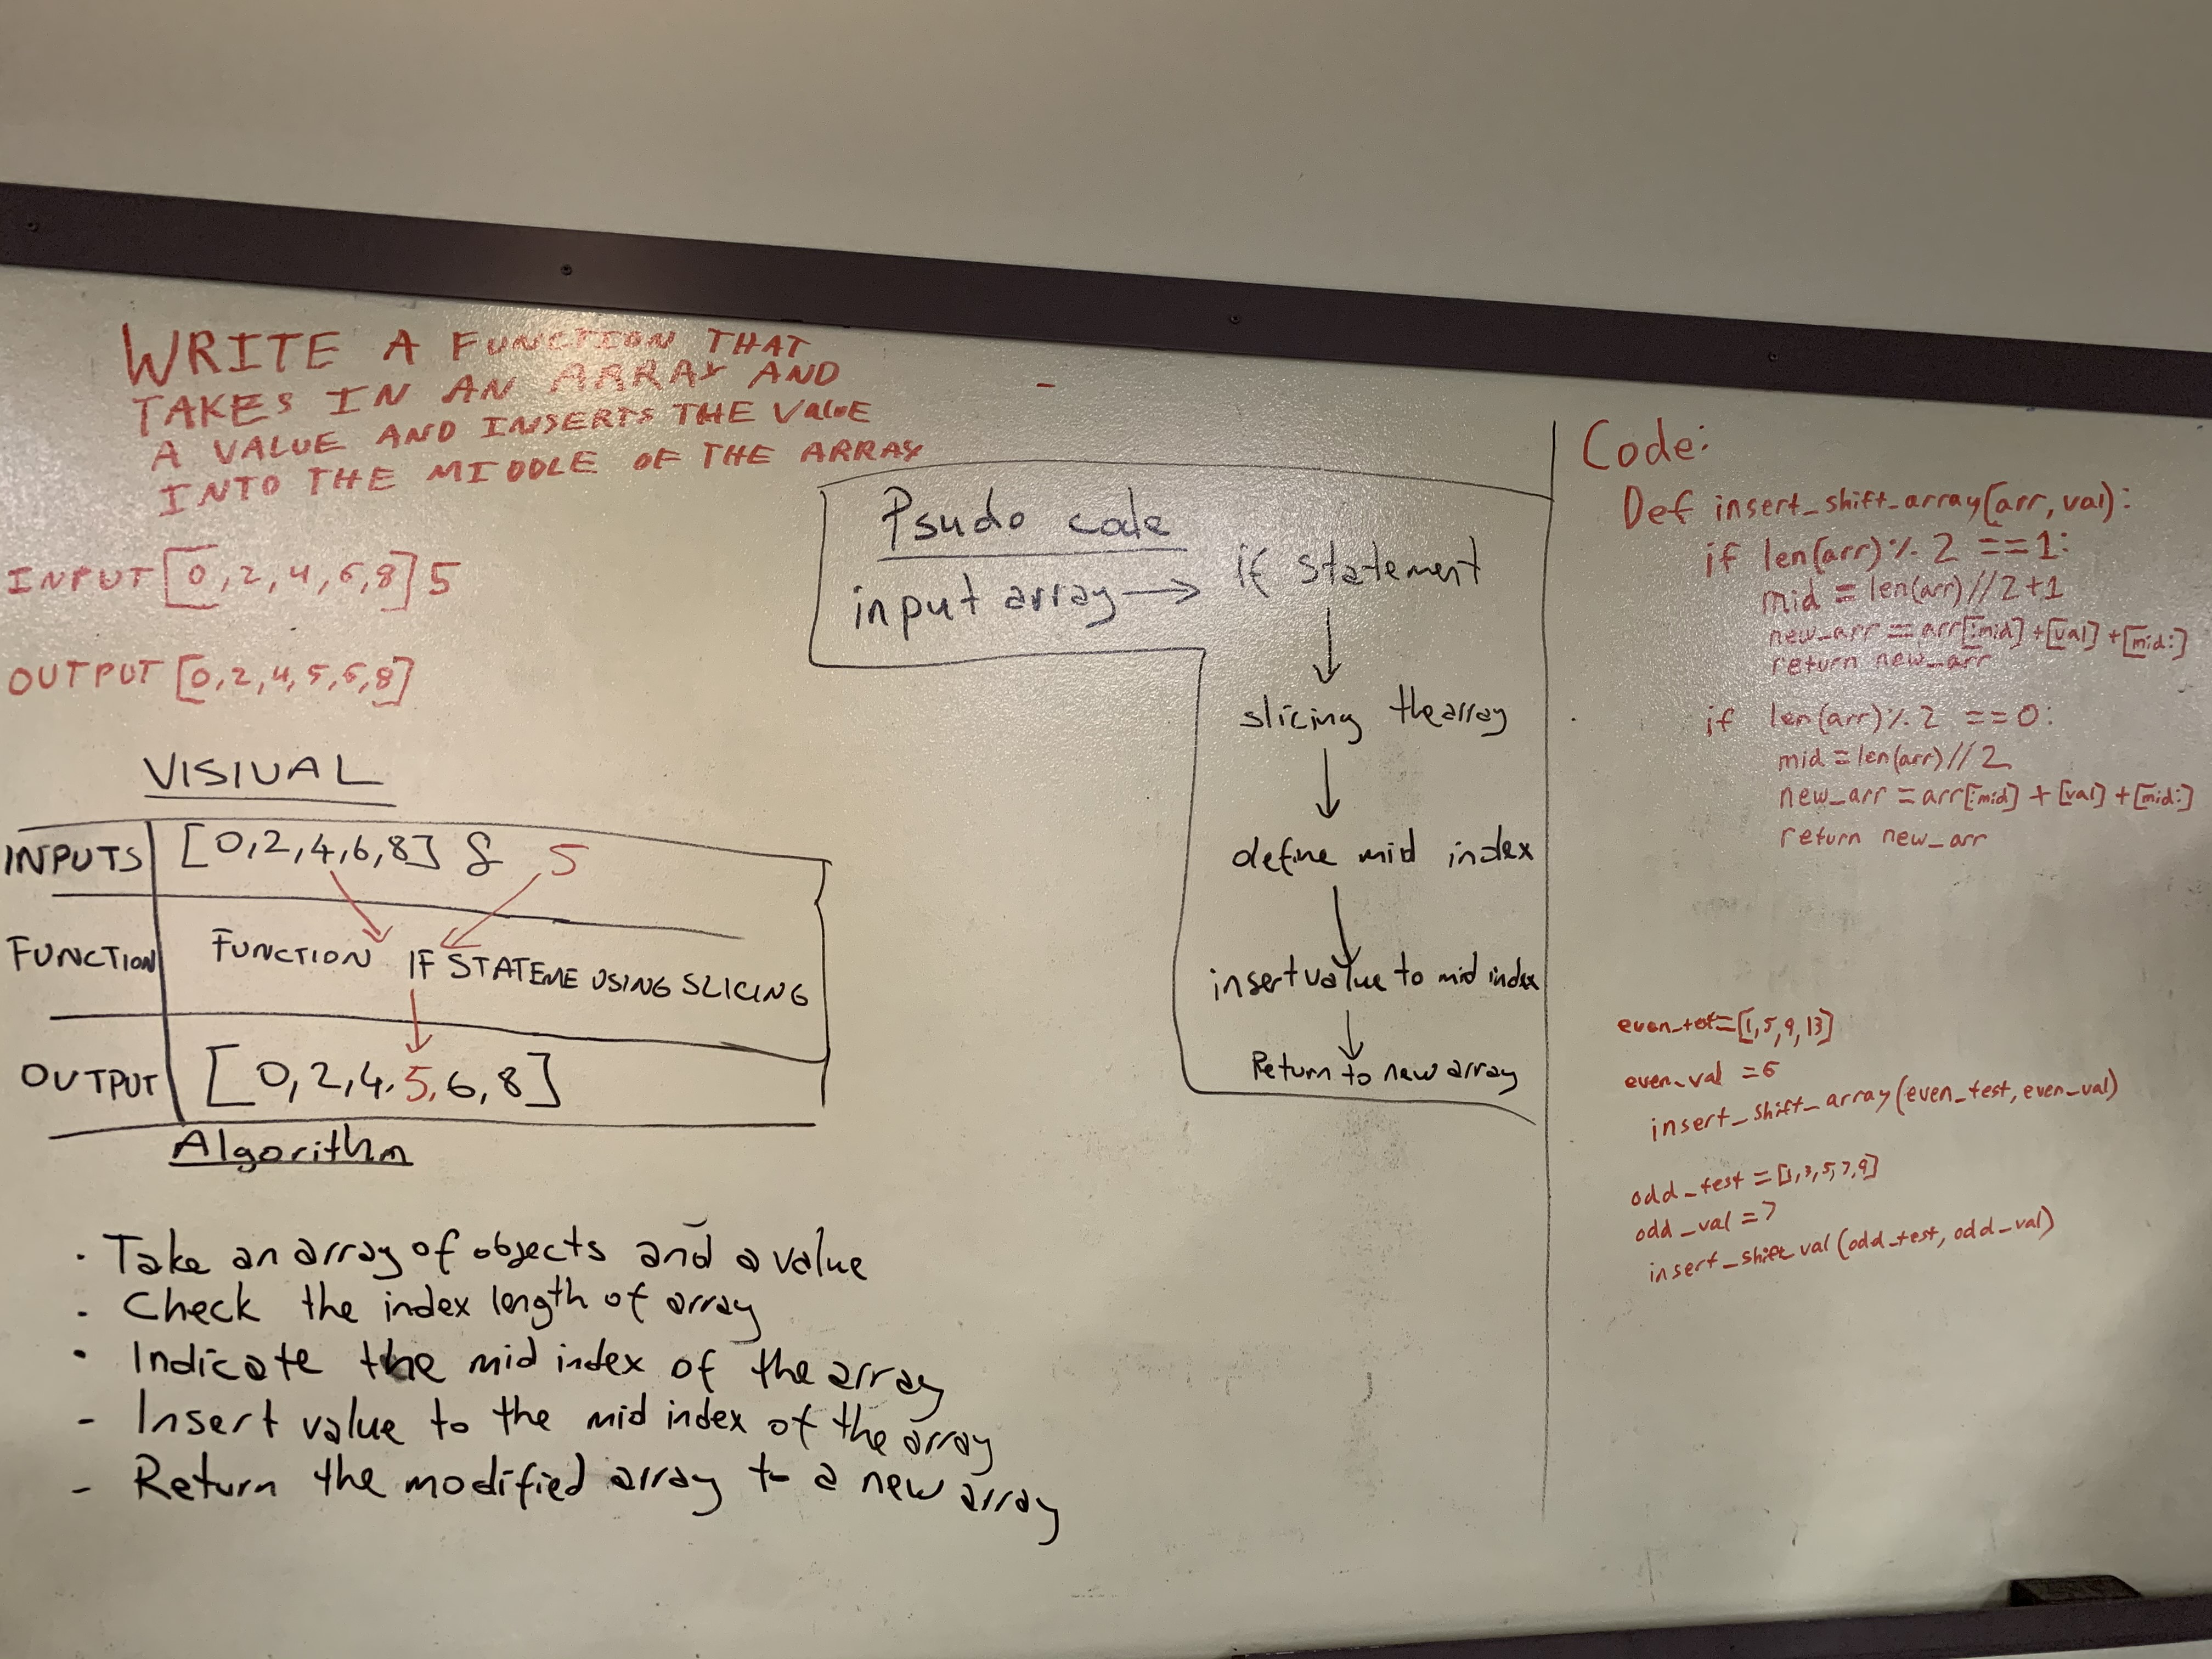 WRITE A FUNCTION THAT
TAKES IN AN ARRAY AND
A VALUE AND INSERTS THE VALUE
INTO THE MIDDLE OF THE ARRAY
INPUT [0,2,4,6,8] 5
OUTPUT [0,2,4,5,6,8]
VISIUAL
INPUTS [0,2,4,6,8] & 5
FUNCTION FUNCTION IF STATEME USING SLICING
OUTPUT [0,2,4,5,6,8]
Algorithm
· Take an array of objects and a value
· Check the index length of array
· Indicate the mid index of the array
- Insert value to the mid index of the array
- Return the modified array to a new array
Psudo code
input array → if statement
slicing the array
define mid index
insert value to mid index
Return to new array
Code:
Def insert_shift_array(arr, val):
if len(arr) % 2 ==1:
mid = len(arr)//2+1
new_arr = arr[:mid] +[val] +[mid:]
return new_arr
if len(arr) % 2 ==0:
mid = len(arr)//2
new_arr = arr[:mid] + [val] +[mid:]
return new_arr
even_test=[1,5,9,13]
even_val =6
insert_shift_array(even_test, even_val)
odd_test = [1,3,5,7,9]
odd_val =7
insert_shift_val(odd_test, odd_val)